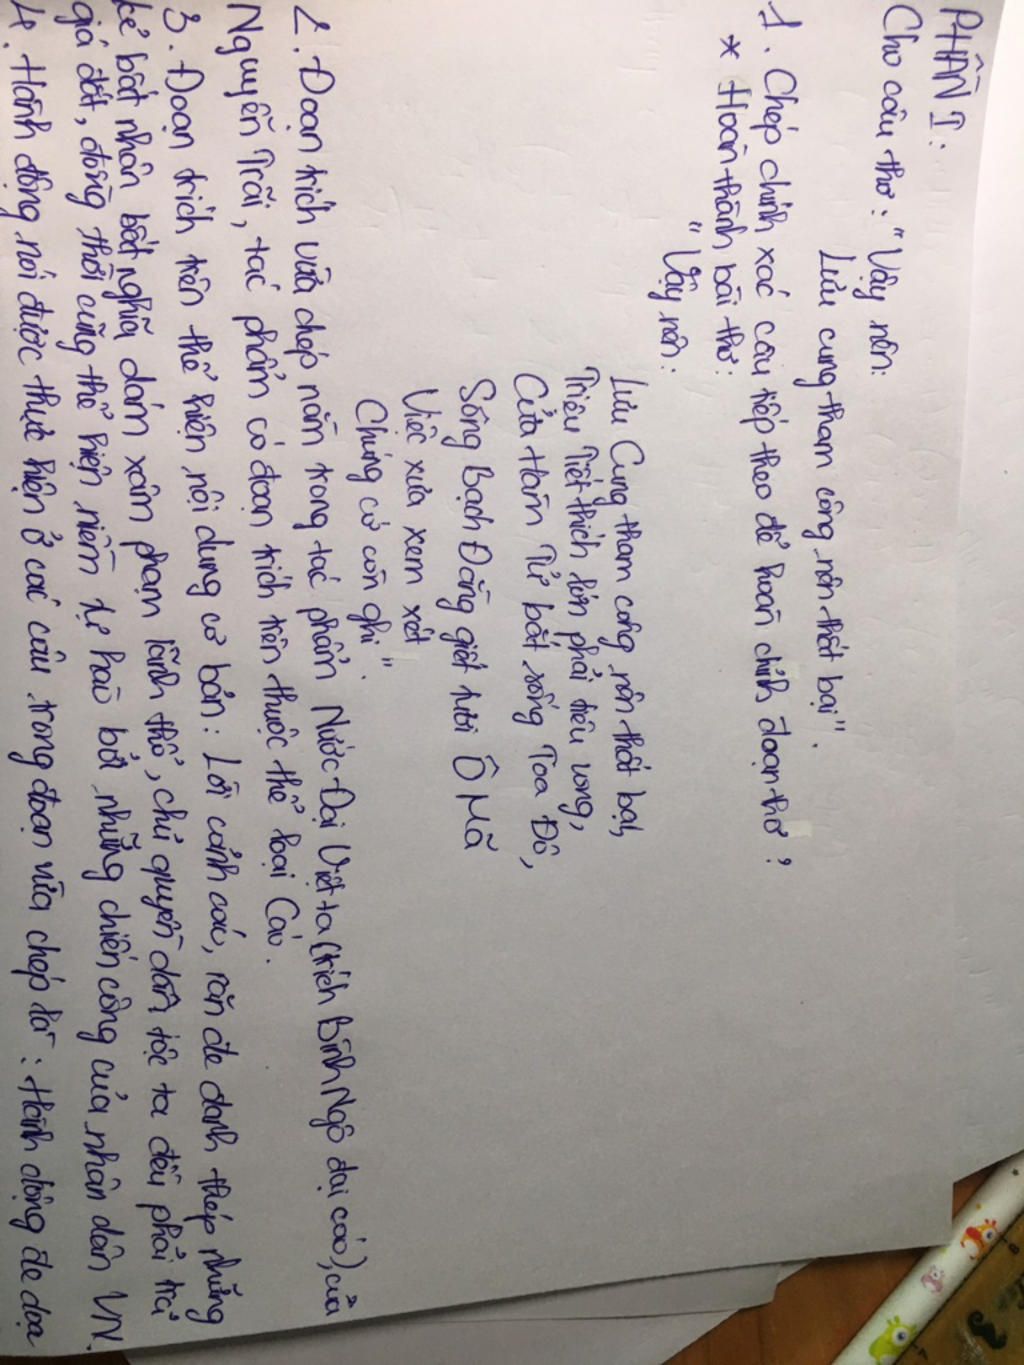 PHẦN I:
Cho câu thơ: "Vậy nên:
Lưu cung tham công nên thất bại".
1. Chép chính xác câu tiếp theo để hoàn chỉnh đoạn thơ?
* Hoàn thành bài thơ:
"Vậy nên:
Lưu Cung tham công nên thất bại,
Triệu Tiết thích lớn phải tiêu vong,
Cửa Hàm Tử bắt sống Toa Đô,
Sông Bạch Đằng giết tươi Ô Mã
Việc xưa xem xét
Chứng cớ còn ghi".
2. Đoạn trích vừa chép nằm trong tác phẩm Nước Đại Việt ta (trích Bình Ngô đại cáo), của
Nguyễn Trãi, tác phẩm có đoạn trích trên thuộc thể loại Cáo.
3. Đoạn trích trên thể hiện nội dung cơ bản: Lời cảnh cáo, răn đe danh thép những
kẻ bất nhân bất nghĩa dám xâm phạm lãnh thổ, chủ quyền dân tộc ta đều phải trả
giá đắt, đồng thời cũng thể hiện niềm tự hào bởi những chiến công của nhân dân VN.
4. Hành động nói được thực hiện ở các câu trong đoạn vừa chép là: Hành động đe dọa